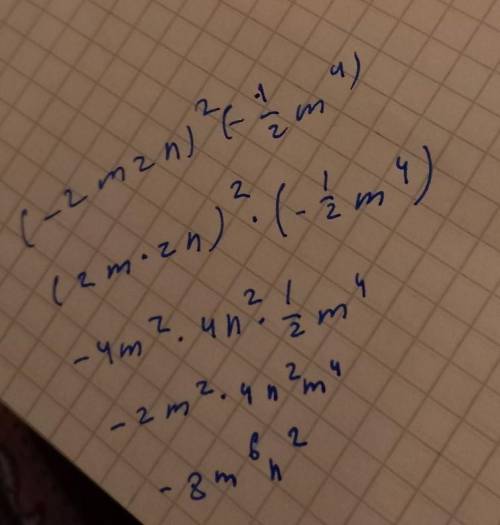 (-2m2n)²(-1/2 m⁴)
(2m·2n)²·(-1/2 m⁴)
-4m²·4n²·1/2 m⁴
-2m²·4n²m⁴
-8m⁶n²